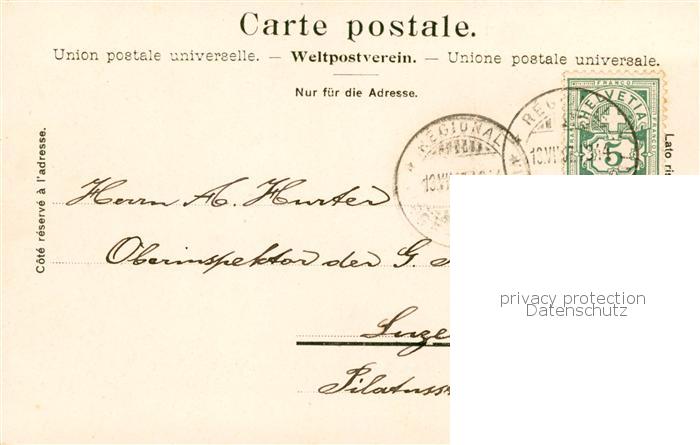 Carte postale.
Union postale universelle. — Weltpostverein. — Unione postale universale.
Nur für die Adresse.
Côté réservé à l'adresse.
Lato ris
REGIONAL
REGI
FRANCO
HELVETIA
5
Herrn A. Hurter
Oberinspektor der G.
Luze
Pilatuss
privacy protection
Datenschutz